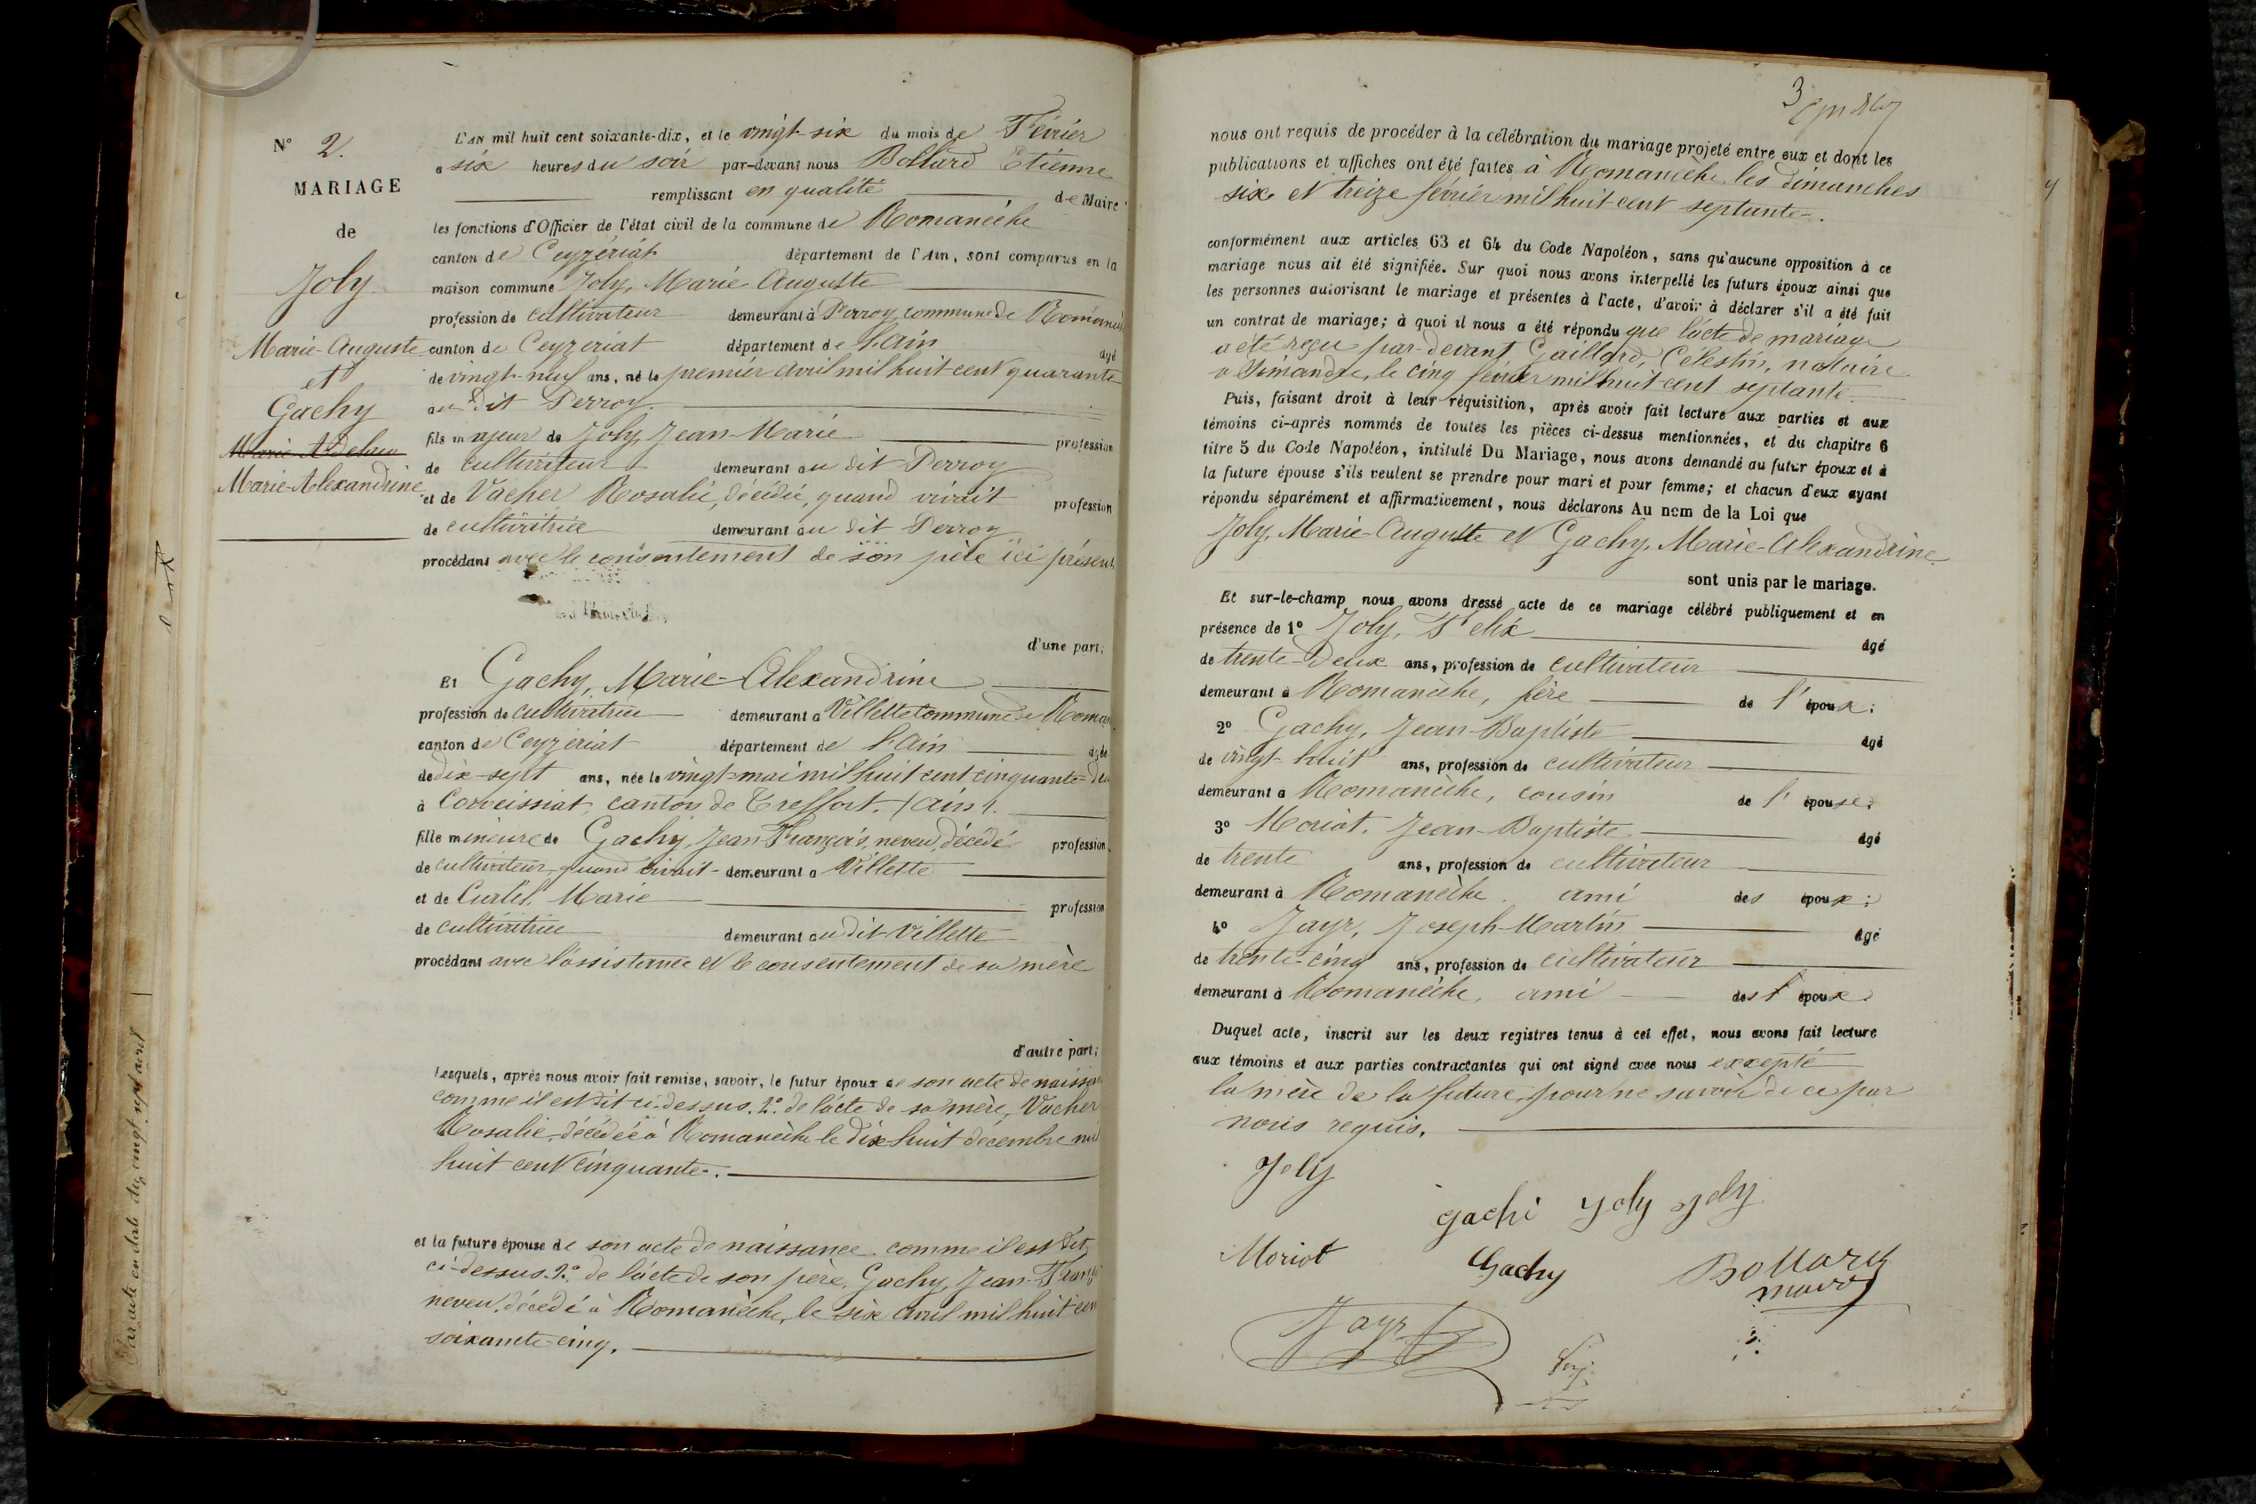 N° 2.
MARIAGE
de
Joly
Marie-Auguste
et
Gachy
Marie-Alexandrine
L'AN mil huit cent soixante-dix, et le vingt-six du mois de Février
a six heures du soir par-devant nous Bollard Etienne
remplissant en qualité de Maire
les fonctions d'Officier de l'état civil de la commune de Romanèche
canton de Ceyzériat département de l'Ain, sont comparus en la
maison commune Joly, Marie Auguste
profession de cultivateur demeurant à Perroy commune de Romanèc
canton de Ceyzeriat département de l'Ain âgé
de vingt-neuf ans, né le premier avril mil huit-cent quarante
au dit Perroy.
fils majeur de Joly, Jean-Marie profession
de cultivateur demeurant au dit Perroy
et de Vacher Rosalie, décédée, quand vivait profession
de cultivatrice demeurant au dit Perroy
procédant avec le consentement de son père ici présent
d'une part;
Et Gachy, Marie-Alexandrine
profession de cultivatrice demeurant a Villette commune de Roma
canton de Ceyzeriat département de l'Ain agée
de dix-sept ans, née le vingt-mai mil huit cent cinquante-deu
à Corveissiat, canton de Treffort. (Ain).
fille mineure de Gachy, Jean-François, neveu, décédé profession
de cultivateur, quand vivait demeurant a Villette
et de Curtel, Marie profession
de cultivatrice demeurant au dit Villette
procédant avec l'assistance et le consentement de sa mère
d'autre part;
Lesquels, après nous avoir fait remise, savoir, le futur époux de son acte de naissan
comme il est dit ci-dessus. 2° de l'acte de sa mère, Vacher
Rosalie, décédée à Romanèche le dix huit décembre mil
huit cent cinquante.
et la future épouse de son acte de naissance comme il est dit
ci-dessus. 2° de l'acte de son père, Gachy, Jean-Franç
neveu, décédé à Romanèche, le six avril mil huit cen
soixante-cinq.
3
nous ont requis de procéder à la célébration du mariage projeté entre eux et dont les
publications et affiches ont été faites à Romanèche les dimanches
six et treize février mil huit-cent septante.
conformément aux articles 63 et 64 du Code Napoléon, sans qu'aucune opposition à ce
mariage nous ait été signifiée. Sur quoi nous avons interpellé les futurs époux ainsi que
les personnes autorisant le mariage et présentes à l'acte, d'avoir à déclarer s'il a été fait
un contrat de mariage; à quoi il nous a été répondu que l'acte de mariage
a été reçu par-devant Gaillard, Célestin, notaire
à Simandre, le cinq février mil huit cent septante.
Puis, faisant droit à leur réquisition, après avoir fait lecture aux parties et aux
témoins ci-après nommés de toutes les pièces ci-dessus mentionnées, et du chapitre 6
titre 5 du Code Napoléon, intitulé Du Mariage, nous avons demandé au futur époux et à
la future épouse s'ils veulent se prendre pour mari et pour femme; et chacun d'eux ayant
répondu séparément et affirmativement, nous déclarons Au nom de la Loi que
Joly, Marie-Auguste et Gachy, Marie-Alexandrine
sont unis par le mariage.
Et sur-le-champ nous avons dressé acte de ce mariage célébré publiquement et en
présence de 1° Joly, Félix âgé
de trente-deux ans, profession de cultivateur
demeurant à Romanèche, frère de l'époux;
2° Gachy, Jean-Baptiste âgé
de vingt-huit ans, profession de cultivateur
demeurant à Romanèche, cousin de l'épouse;
3° Moriot, Jean-Baptiste âgé
de trente ans, profession de cultivateur
demeurant à Romanèche. ami des époux;
4° Jayr, Joseph-Martin âgé
de trente-cinq ans, profession de cultivateur
demeurant à Romanèche, ami des époux.
Duquel acte, inscrit sur les deux registres tenus à cet effet, nous avons fait lecture
aux témoins et aux parties contractantes qui ont signé avec nous excepté
la mère de la future, pour ne savoir de ce par
nous requis.
Joly
gachi Joly Joly
Moriot Gachy Bollard
Jayr